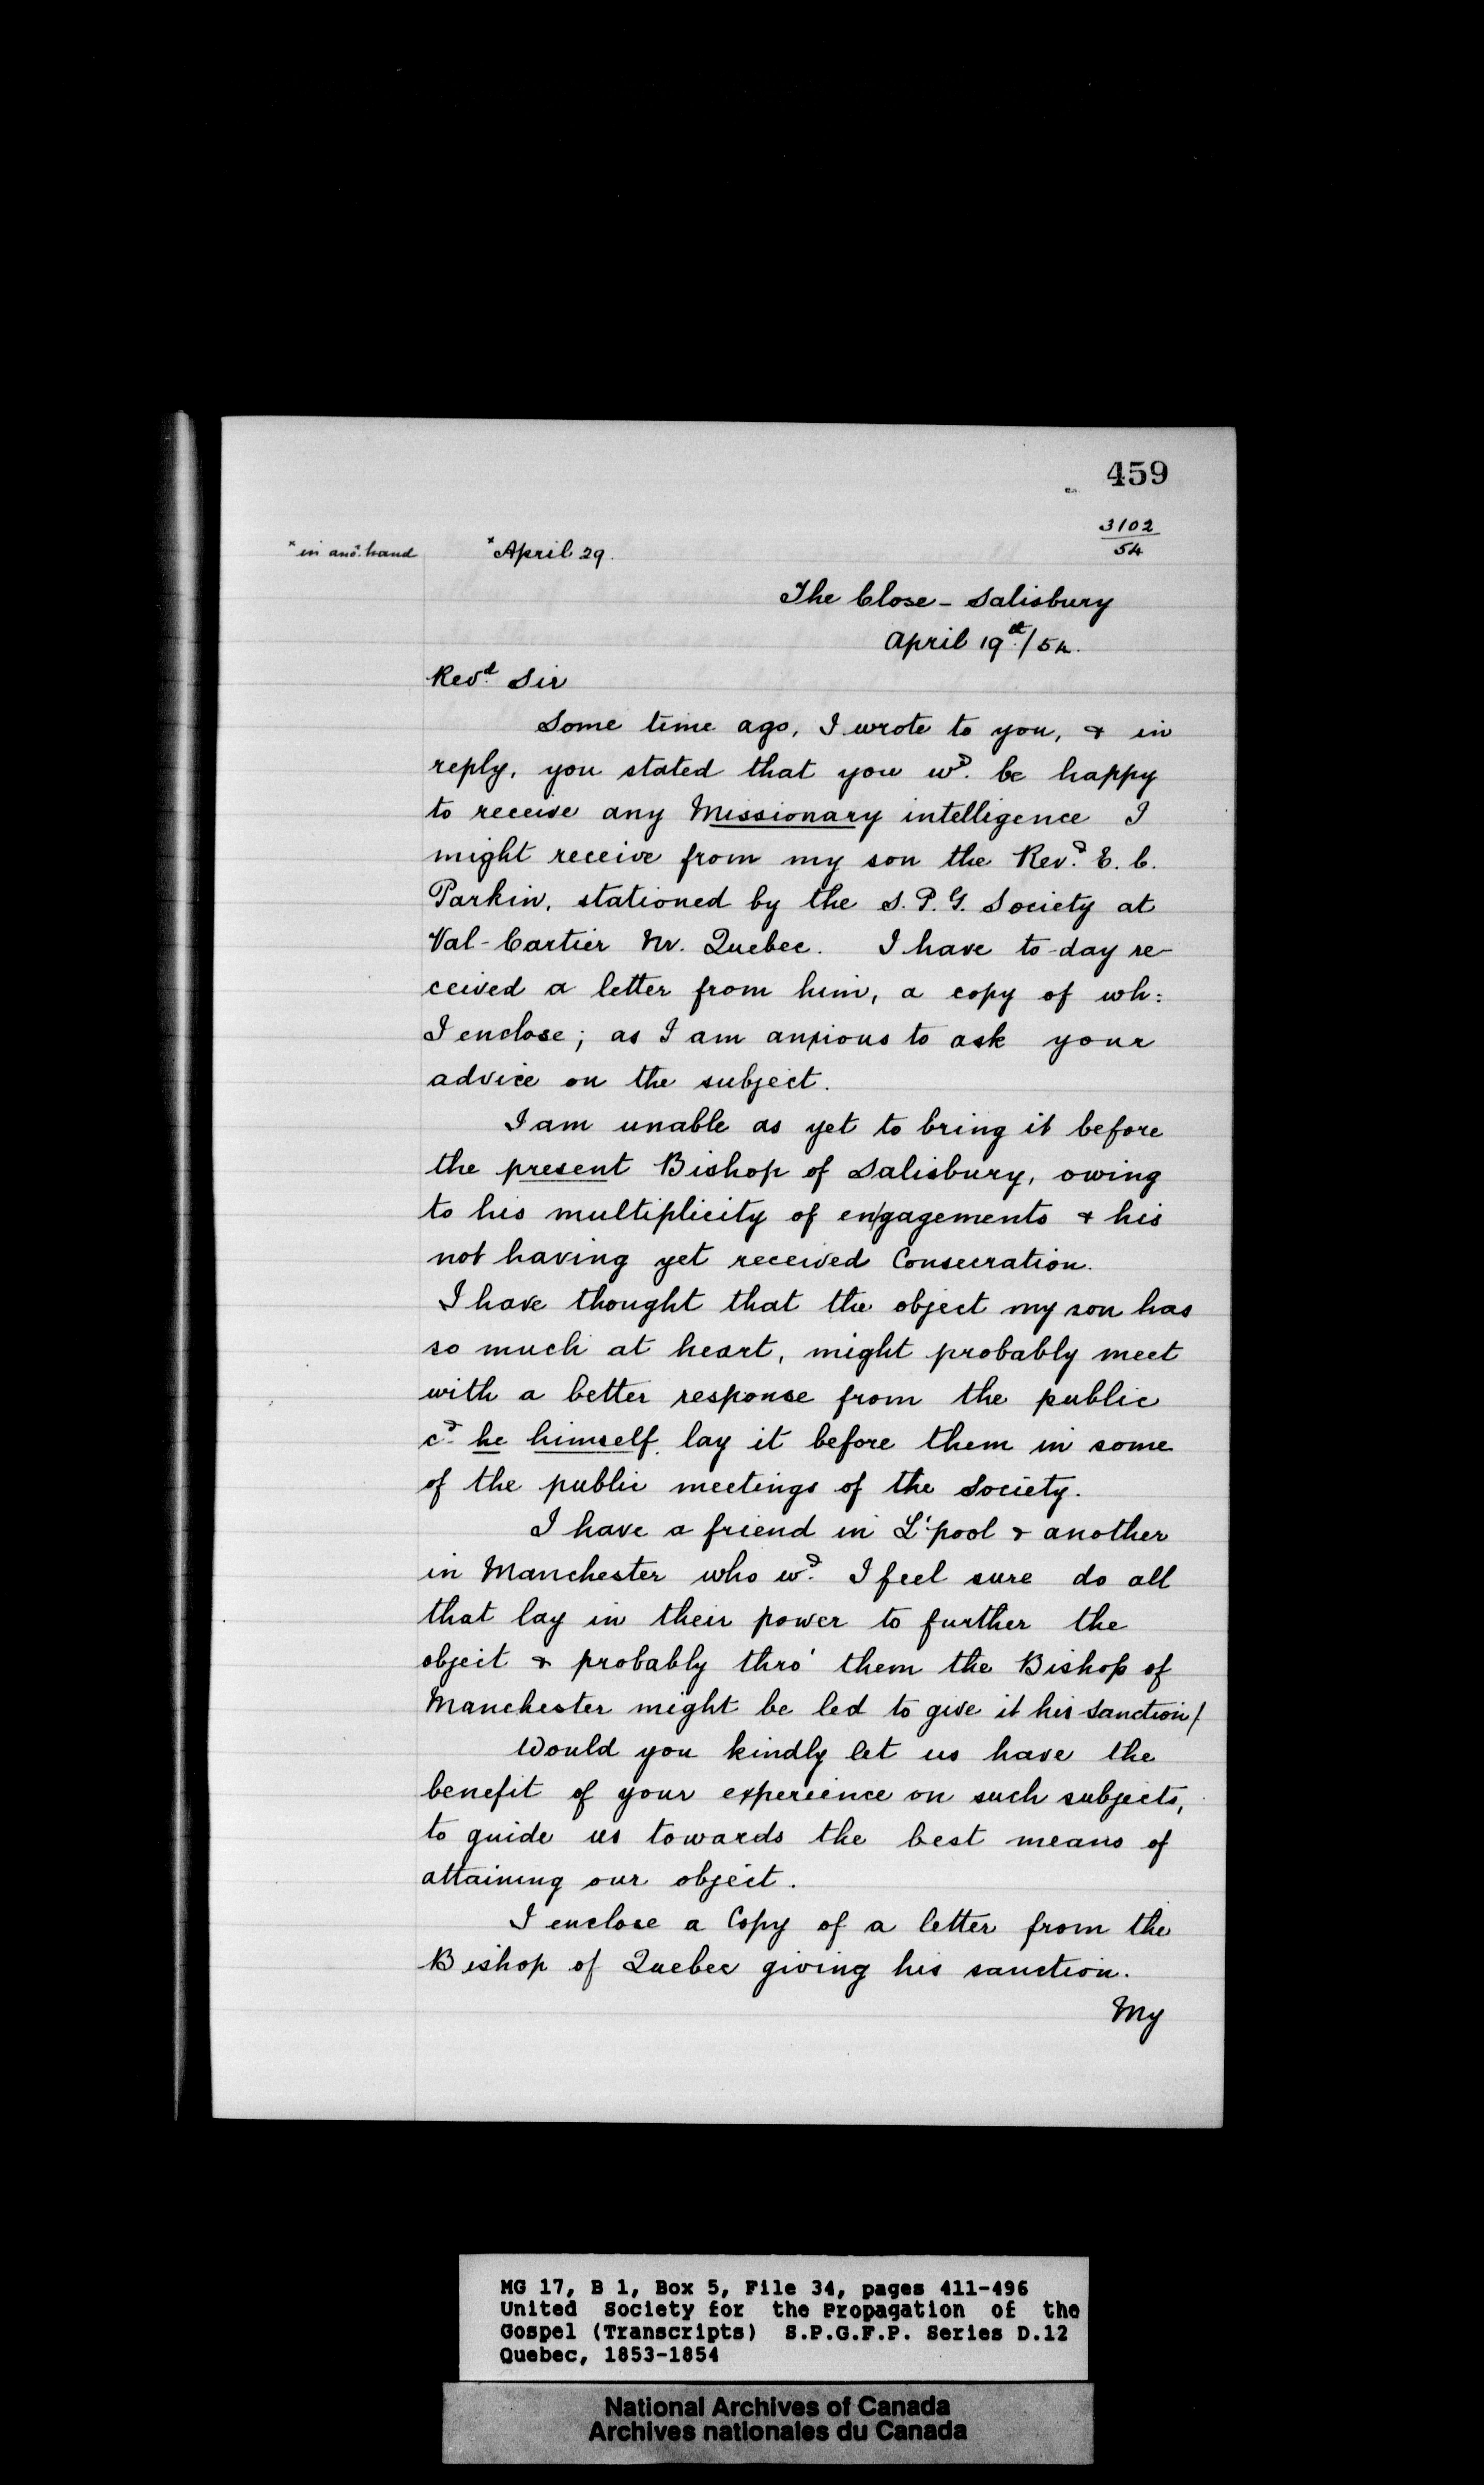 459
3102
54
* in ano.r hand
* April 29.
The Close - Salisbury
April 19th./54.
Revd. Sir
Some time ago, I wrote to you, & in
reply, you stated that you wd. be happy
to receive any Missionary intelligence I
might receive from my son the Revd. E. C.
Parkin, stationed by the S. P. G. Society at
Val-Cartier Nr. Quebec. I have to-day re-
ceived a letter from him, a copy of wh:
I enclose; as I am anxious to ask your
advice on the subject.
I am unable as yet to bring it before
the present Bishop of Salisbury, owing
to his multiplicity of en/gagements & his
not having yet received Consecration.
I have thought that the object my son has
so much at heart, might probably meet
with a better response from the public
cd. he himself lay it before them in some
of the public meetings of the Society.
I have a friend in L'pool & another
in Manchester who wd. I feel sure do all
that lay in their power to further the
object & probably thro' them the Bishop of
Manchester might be led to give it his sanction/.
Would you kindly let us have the
benefit of your experience on such subjects,
to guide us towards the best means of
attaining our object.
I enclose a Copy of a letter from the
Bishop of Quebec giving his sanction.
My
MG 17, B 1, Box 5, File 34, pages 411-496
United Society for the Propagation of the
Gospel (Transcripts) S.P.G.F.P. Series D.12
Quebec, 1853-1854
National Archives of Canada
Archives nationales du Canada